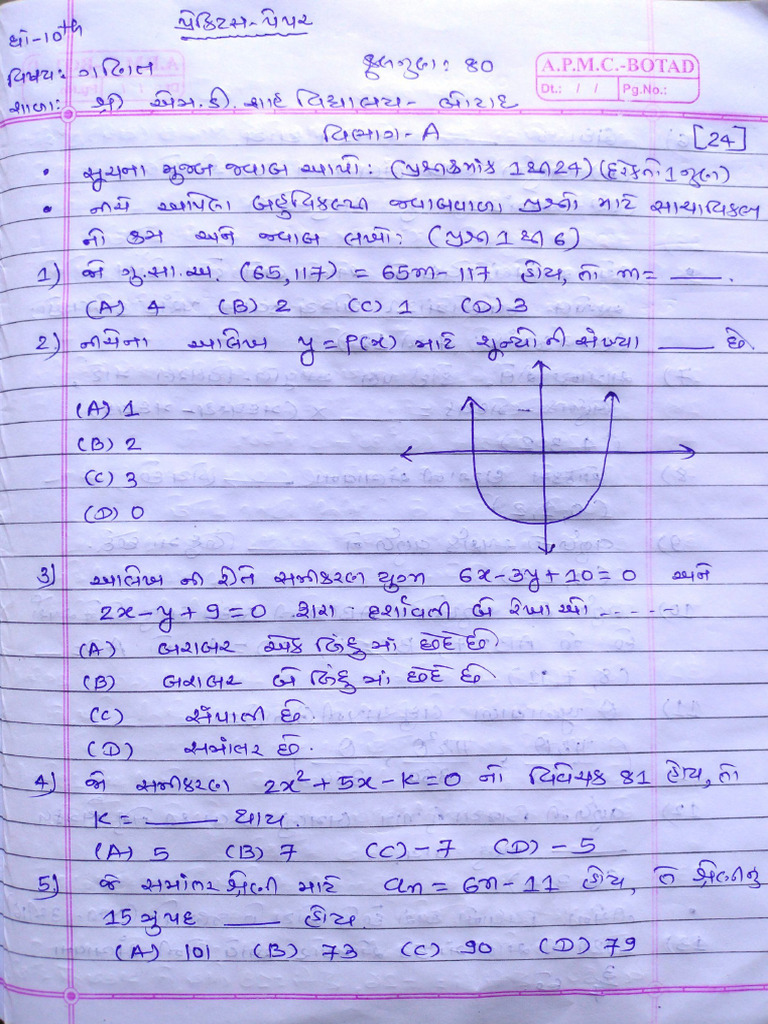 ધો-10th
પ્રેક્ટિસ-પેપર
વિષય: ગણિત
કુલગુણ: ૪૦
A.P.M.C.-BOTAD
Dt.: / / Pg.No.:
શાળા: શ્રી એમ.ડી. શાહ વિદ્યાલય- બોટાદ
વિભાગ-A [24]
• સૂચના મુજબ જવાબ આપો: (પ્રશ્નક્રમાંક 1 થી 24) (દરેકનો 1 ગુણ)
• નીચે આપેલા બહુવિકલ્પી જવાબવાળા પ્રશ્નો માટે સાચાવિકલ્પ
નો ક્રમ અને જવાબ લખો: (પ્રશ્ન 1 થી 6)
1) જો ગુ.સા.અ. (65,117) = 65m-117 હોય, તો m= ___.
(A) 4 (B) 2 (C) 1 (D) 3
2) નીચેના આલેખ y=P(x) માટે શૂન્યોની સંખ્યા ___ છે.
(A) 1
(B) 2
(C) 3
(D) 0
3) આલેખ ની રીતે સમીકરણ યુગ્મ 6x-3y+10=0 અને
2x-y+9=0 દ્વારા દર્શાવતી બે રેખાઓ -----
(A) બરાબર એક બિંદુમાં છેદે છે.
(B) બરાબર બે બિંદુમાં છેદે છે.
(C) સંપાતી છે.
(D) સમાંતર છે.
4) જો સમીકરણ 2x²+5x-K=0 નો વિવેચક 81 હોય, તો
K= ___ થાય.
(A) 5 (B) 7 (C) -7 (D) -5
5) જે સમાંતર શ્રેણી માટે an = 6n-11 હોય, તે શ્રેણીનું
15મુપદ ___ હોય.
(A) 101 (B) 73 (C) 90 (D) 79